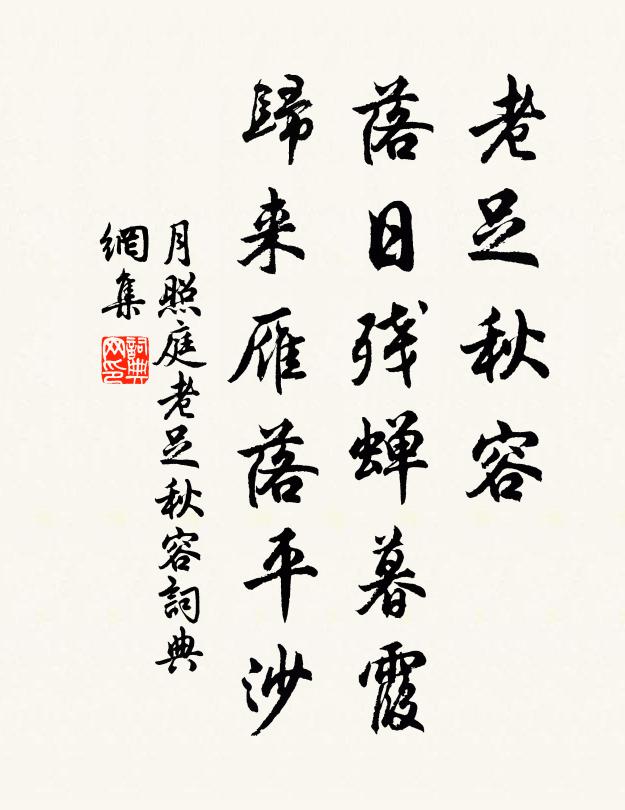 老足秋容
落日残蝉暮霞
歸来雁落平沙
月照庭老足秋容詞典
網集
詞典
网印